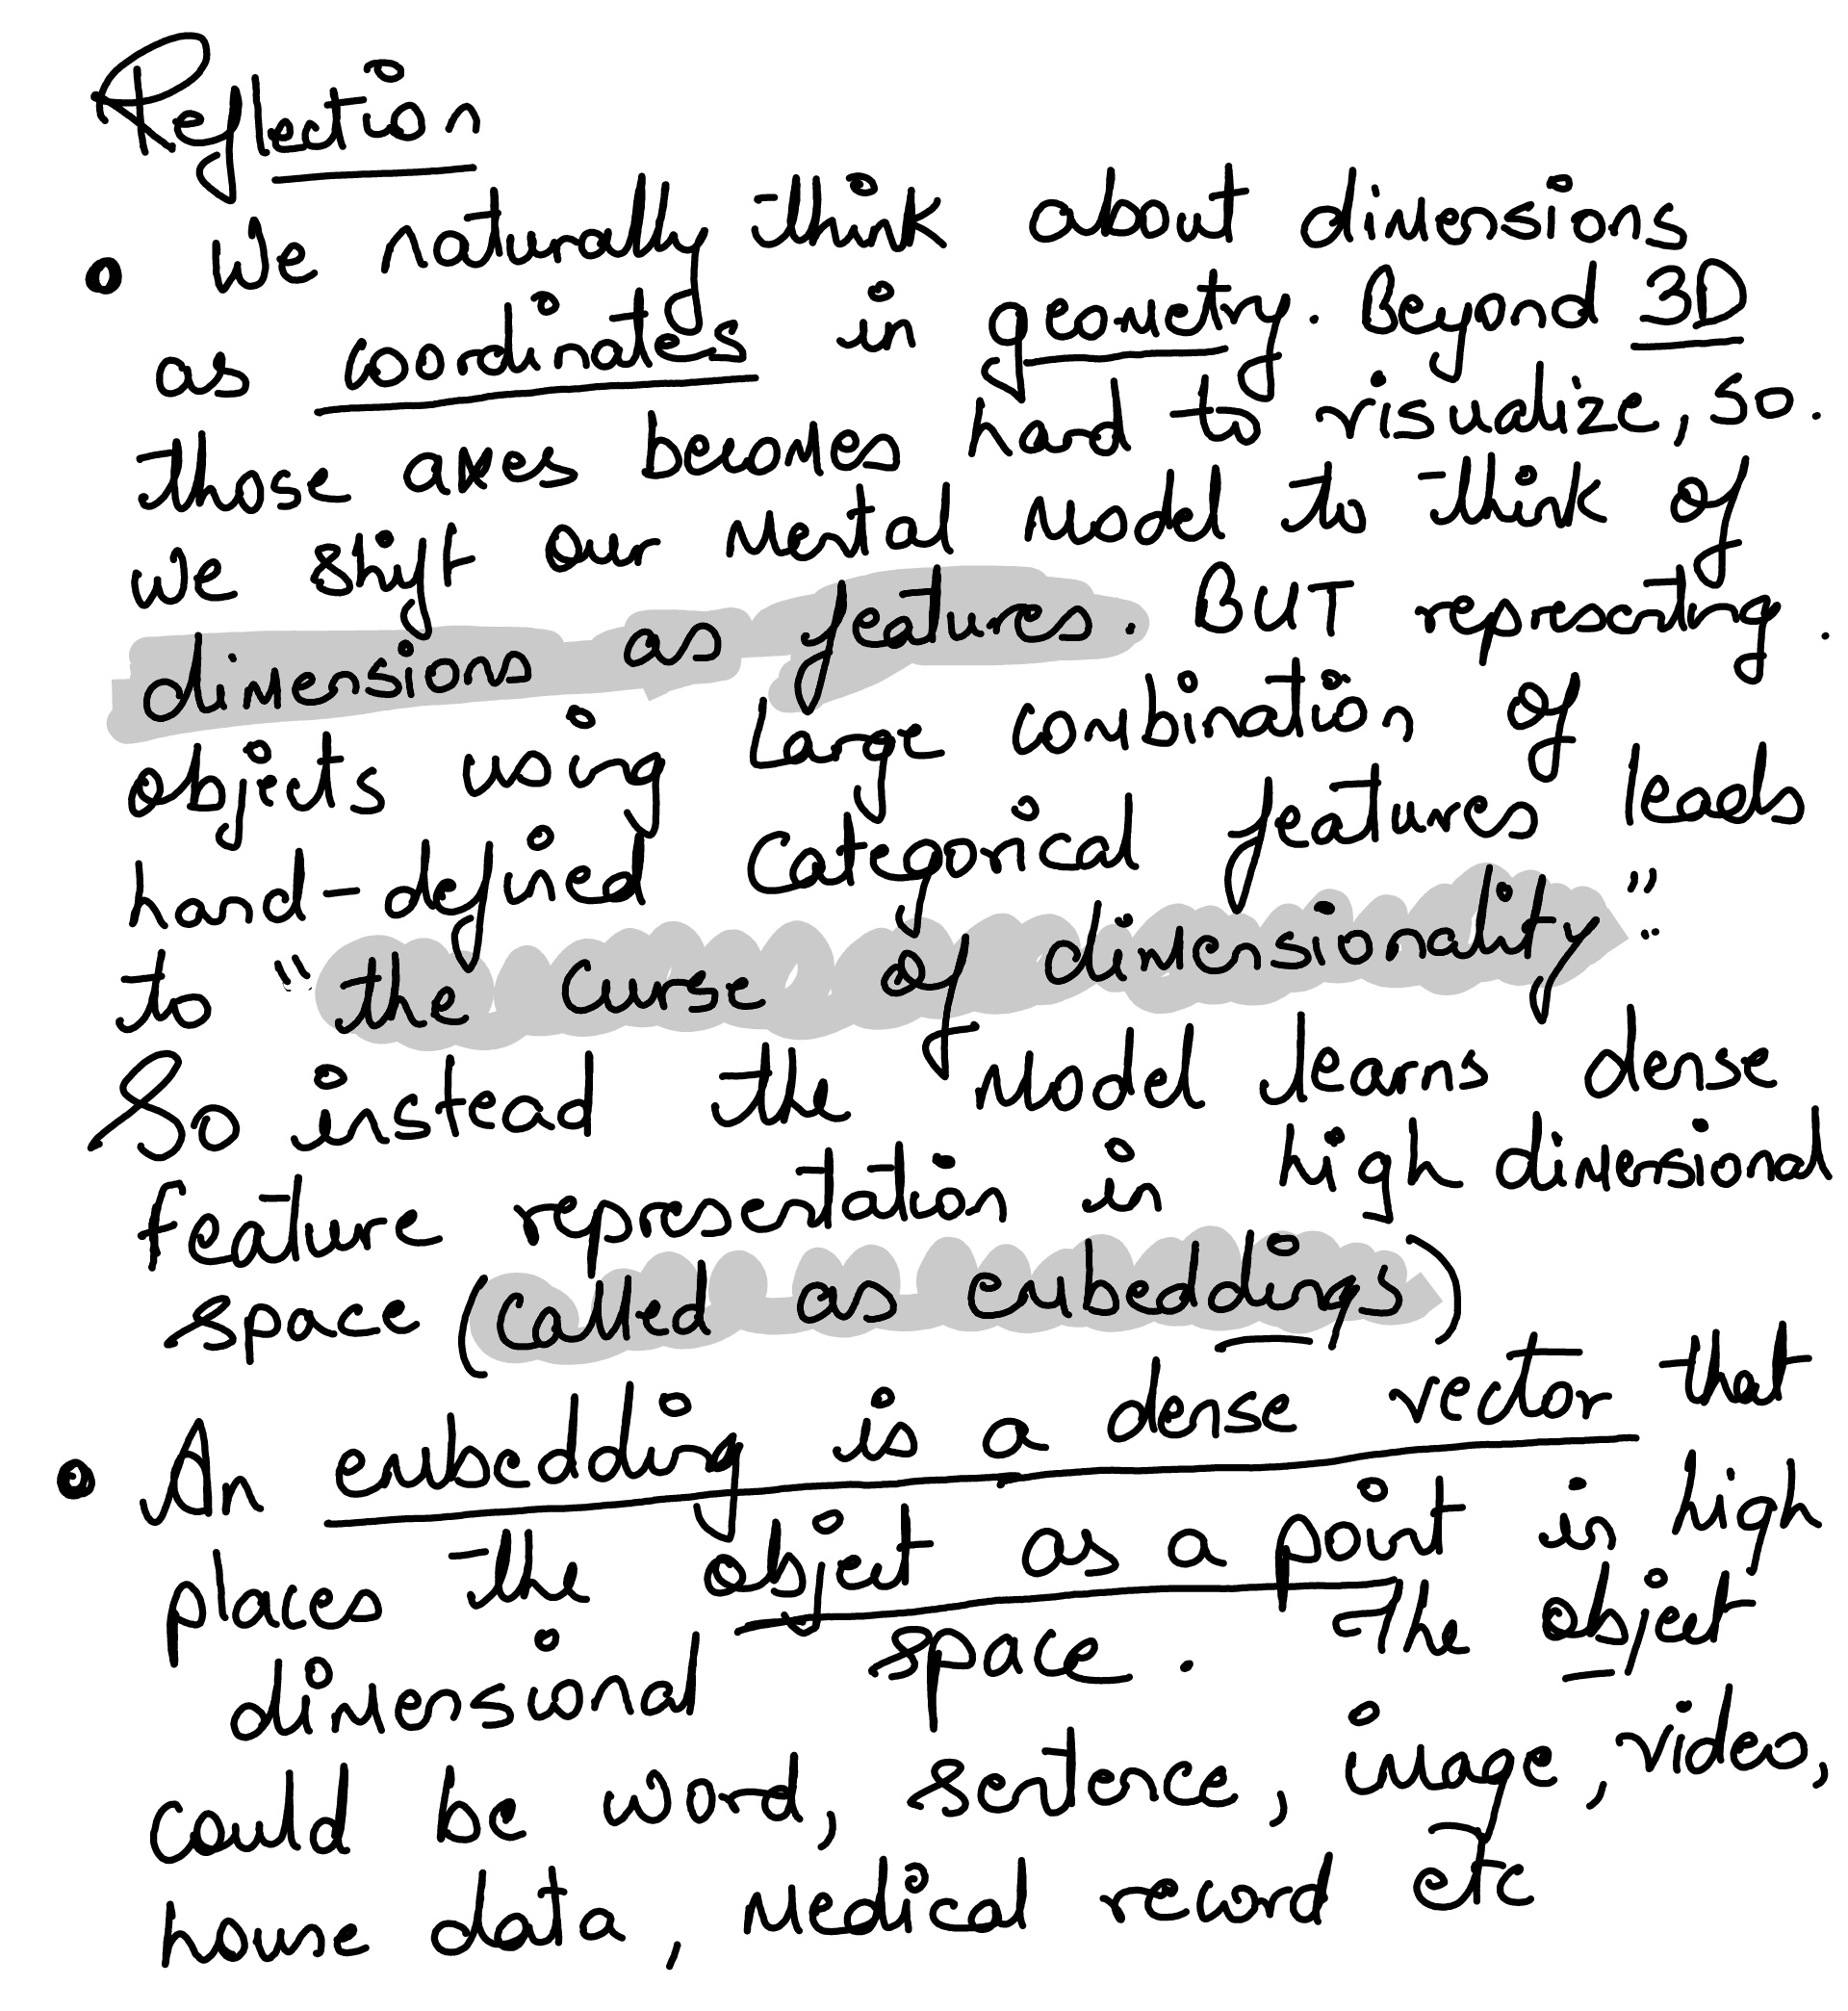 Reflection
• We naturally think about dimensions
as coordinates in geometry. Beyond 3D
those axes becomes hard to visualize, so.
we shift our mental model to think of
dimensions as features. BUT representing.
objects using large combination of
hand-defined categorical features leads
to "the curse of dimensionality".
So instead the model learns dense
feature representation in high dimensional
space (called as embeddings)
• An embedding is a dense vector that
places the object as a point in high
dimensional space. The object
could be word, sentence, image, video,
house data, medical record etc